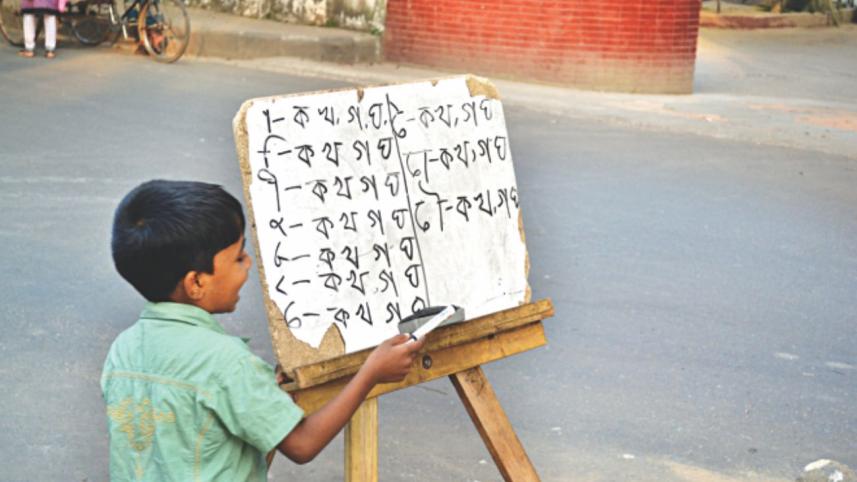 া- ক খ, গ, ঘ,
ি- ক খ গ ঘ
ী- ক খ গ ঘ
ু- ক খ গ ঘ
ূ- ক খ গ ঘ
ৃ- ক খ গ ঘ
ে- ক খ গ ঘ
ৈ- ক খ, গ ঘ
ো- ক খ, গ ঘ
ৌ- ক খ, গ ঘ